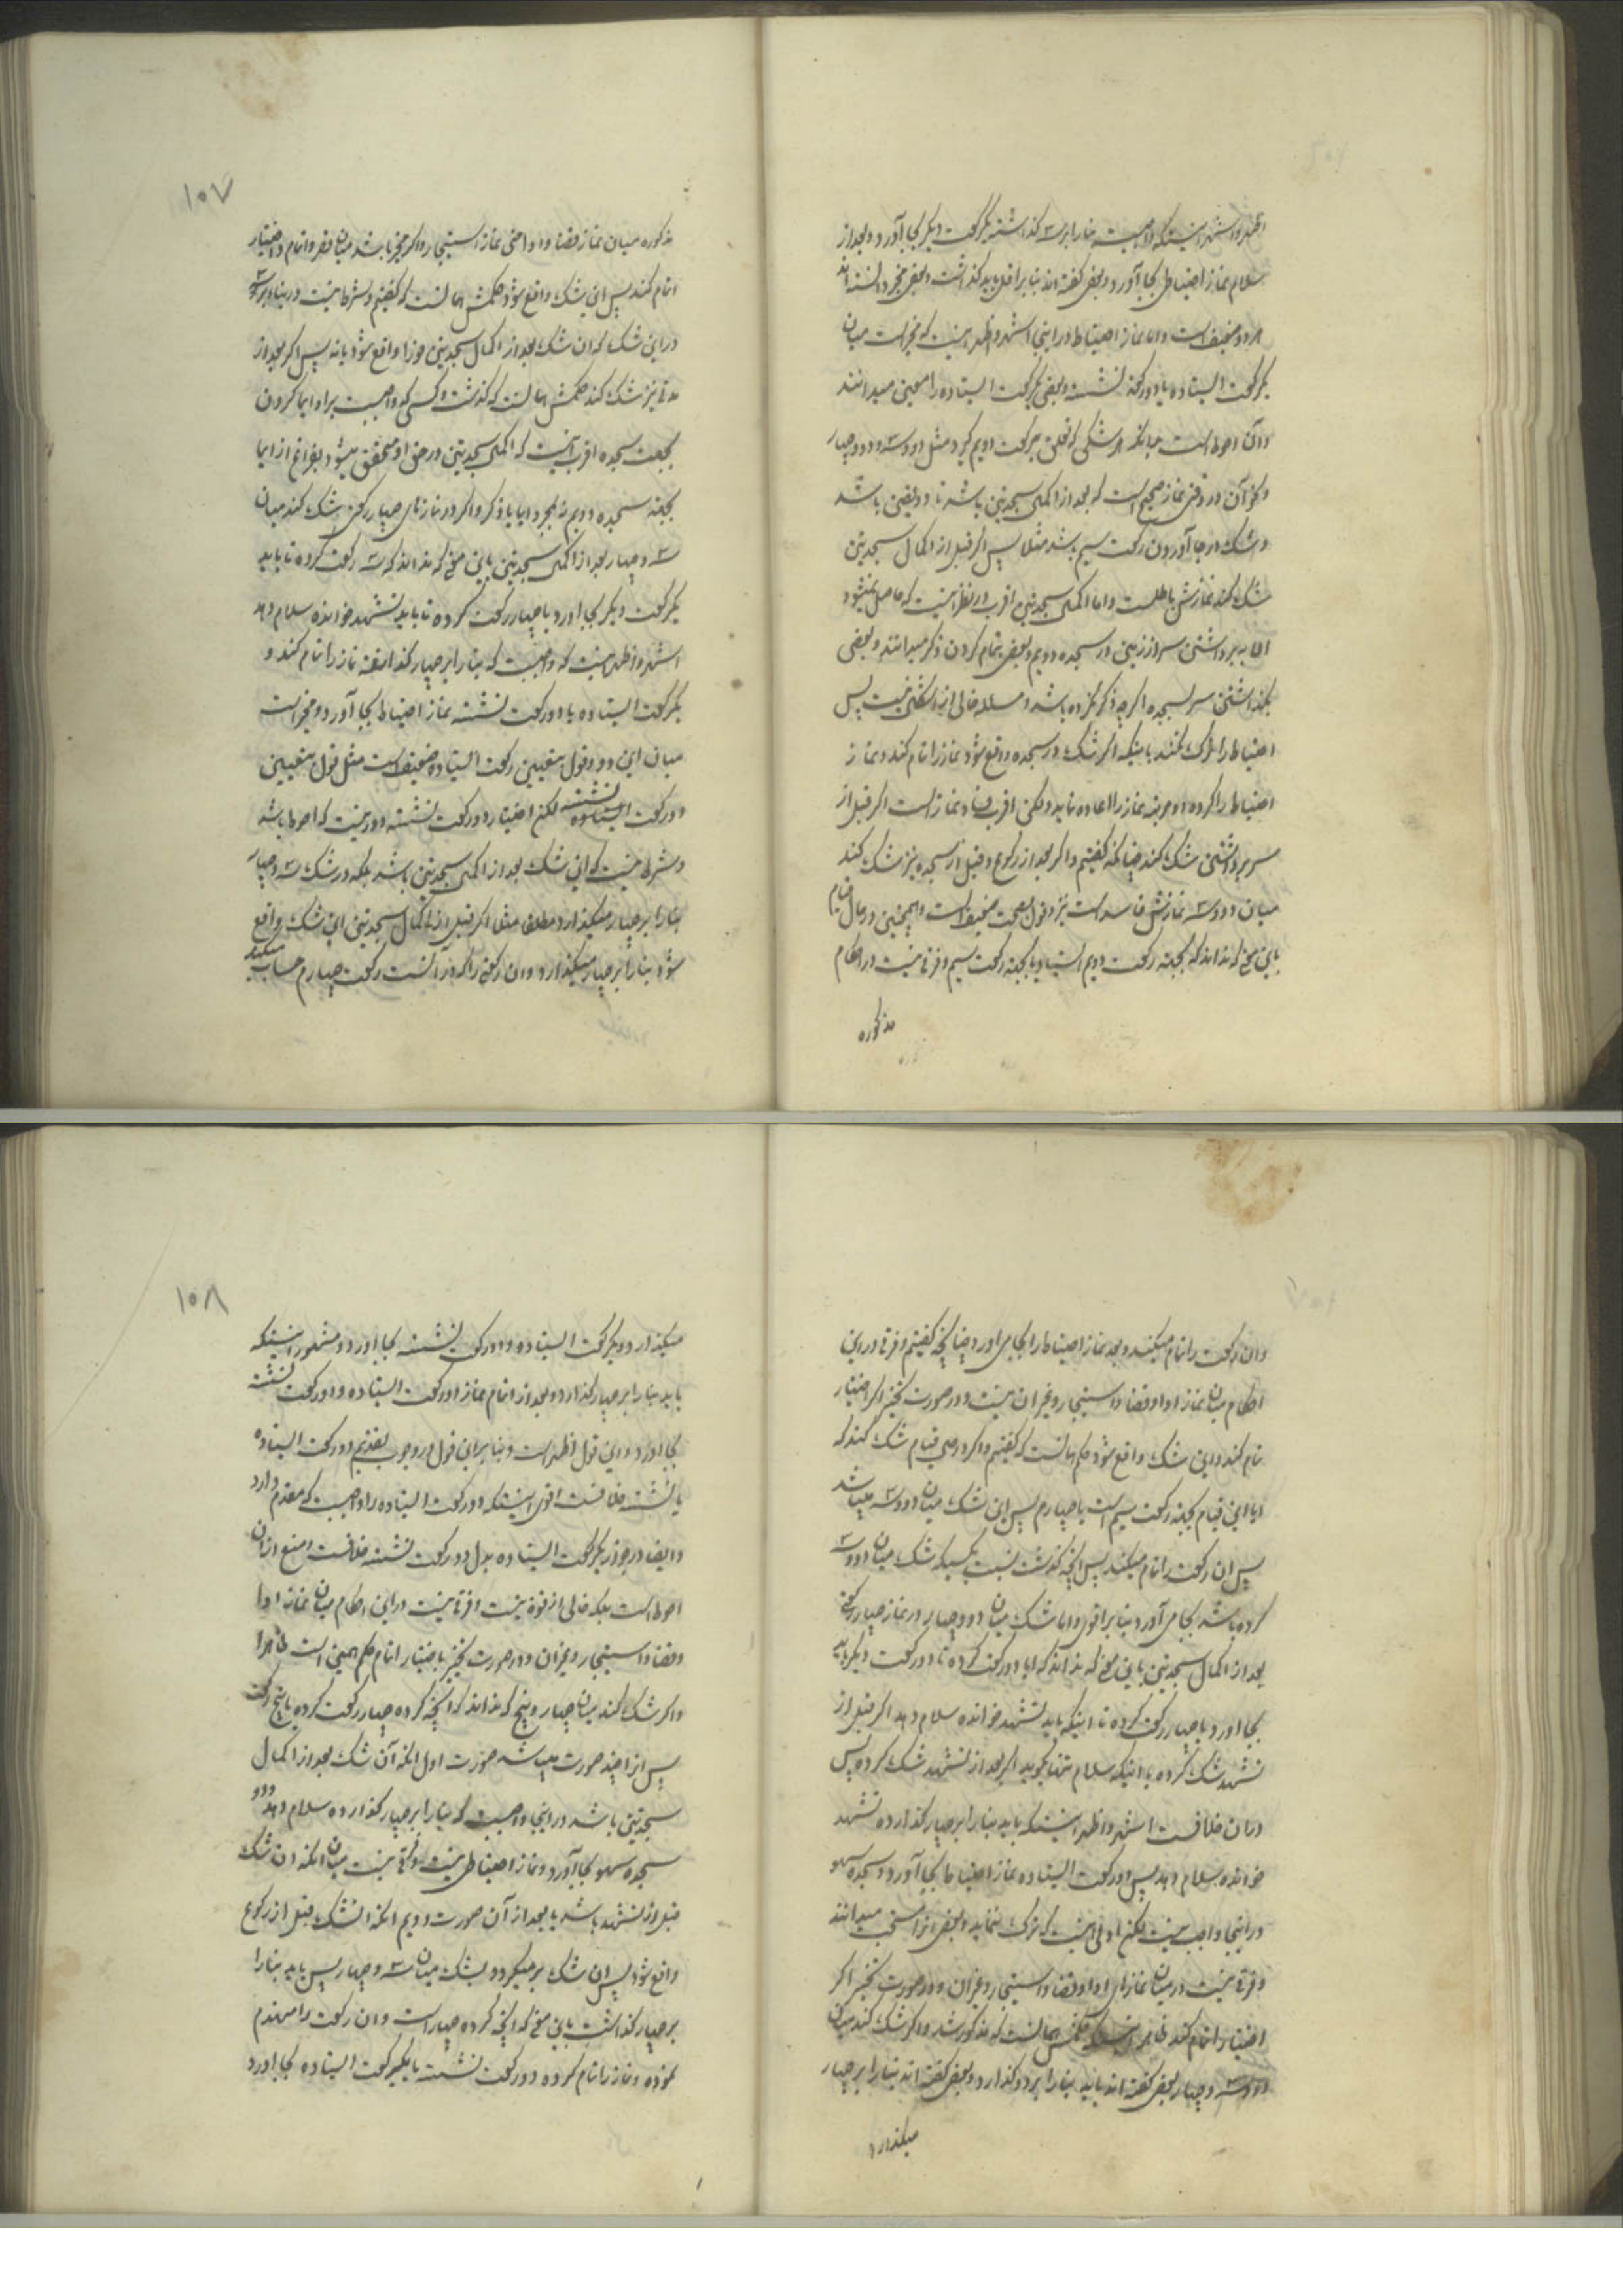 اظهر و اشهر اینستکه واجبست بنا را بر سه گذاشته یکرکعت دیگر بجا آورد و بعد از
سلام نماز احتیاط بجا آورد و بعضی گفته اند بنا بر اقل باید گذاشت و بعضی مخیر دانسته اند
هر دو ضعیف است و اما نماز احتیاط در اینجا اشهر و اظهر اینست که مخیر است میان
یکرکعت ایستاده یا دو رکعت نشسته و بعضی یکرکعت ایستاده را معین میدانند
و آن احوط است چنانکه هر شکی که تعلق برکعت دویم گیرد مثل دو و سه و دو و چهار
و جز آن در وقتی نماز صحیح است که بعد از اکمال سجدتین باشد تا دو یقین باشد
و شک در بجا آوردن رکعت سیم باشد مثلا پس اگر قبل از اکمال سجدتین
شک کند نمازش باطلست و اما اکمال سجدتین اقرب در نظر اینست که حاصل نمیشود
الا به برداشتن سر از زمین در سجده دویم و بعضی بتمام کردن ذکر میدانند و بعضی
بگذاشتن سر بسجده اگرچه ذکر نکرده باشد و مسئله خالی از اشکال نیست پس
احتیاط را ترک نکنند باینکه اگر شک در سجده واقع شود نماز را تمام کند و نماز
احتیاط را کرده نماز را اعاده نماید و لکن اقرب فساد نماز است اگر قبل از
سر برداشتن شک کند چنانکه گفتیم و اگر بعد از رکوع و قبل از سجده نیز شک کند
میان دو و سه نمازش فاسد است نیز و قول بصحت ضعیف است و همچنین در حال قیام
باین نحو که نداند که بجهته رکعت دویم ایستاد یا بجهته رکعت سیم و فرقی نیست در احکام
مذکوره
۱۰۷
مذکوره میان نماز قضا و ادا حتی نماز استیجار و اگر مخیر باشد میان قصر و اتمام و اختیار
اتمام کند پس این شک واقع شود حکمش همانست که گفتیم و شرط نیست در بنا بر سه
در این شک که ان شک بعد از اکمال سجدتین فورا واقع شود یا نه پس اگر بعد از
مدتی نیز شک کند حکمش همانست که گذشت و کسی که واجبست بر او ایما کردن
بجهت سجده اقرب آنست که اکمال سجدتین در حق او متحقق میشود بفراغ از ایما
بجهته سجده دویم نه بمجرد ایما یا ذکر و اگر در نمازهای چهار رکعتی شک کند میان
سه و چهار بعد از اکمال سجدتین باین نحو که نداند که سه رکعت کرده تا باید
یکرکعت دیگر بجا اورد یا چهار رکعت کرده تا باید تشهد خوانده سلام دهد
اشهر و اظهر اینست که واجبست که بنا را بر چهار گذاشته نماز را تمام کند و
یکرکعت ایستاده یا دو رکعت نشسته نماز احتیاط بجا آورد و مخیر است
میان این دو و قول بتعیین رکعت ایستاده ضعیف است مثل قول بتعیین
دو رکعت نشسته لکن اختیار دو رکعت نشسته دور نیست که احوط باشد
و شرط نیست که این شک بعد از اکمال سجدتین باشد بلکه در شک سه و چهار
بنا را بر چهار میگذارد مطلقا مثلا اگر قبل از اکمال سجدتین این شک واقع
شود بنا را بر چهار میگذارد و ان رکعتی را که در آنست رکعت چهارم حساب میکند
و ان رکعت را تمام میکند و بعد نماز احتیاط را بجا می اورد چنانچه گفتیم و فرقی در این
احکام میان نماز ادا و قضا و استیجار و غیر ان نیست و در صورت تخییر اگر اختیار
تمام کند و این شک واقع شود حکم همانست که گفتیم و اگر در حین قیام شک کند که
ایا این قیام بجهته رکعت سیم است یا چهارم پس این شک میان دو و سه میباشد
پس ان رکعت را تمام میکند پس انچه گذشت نسبت بکسیکه شک میان دو و سه
کرده باشد بجا می آورد بنا بر اقوی و اما شک میان دو و چهار در نماز چهار رکعتی
بعد از اکمال سجدتین باین نحو که نداند که ایا دو رکعت کرده تا دو رکعت دیگر باید
بجا اورد یا چهار رکعت کرده تا اینکه باید تشهد خوانده سلام دهد اگر قبل از
تشهد شک کرده یا اینکه سلام تنها بگوید اگر بعد از تشهد شک کرده پس
در ان خلافست اشهر و اظهر اینستکه باید بنا را بر چهار گذارده تشهد
خوانده سلام دهد پس دو رکعت ایستاده نماز احتیاط بجا آورد و سجده سهو
در اینجا واجب نیست لکن اولی اینست که ترک ننماید و بعضی انرا مستحب میدانند
و فرقی نیست در میان نمازهای ادا و قضا و استیجار و غیر ان و در صورت تخییر اگر
اختیار اتمام کند حکمش همانست که مذکور شد و اگر شک کند میان
دو و سه و چهار بعضی گفته اند باید بنا را بر دو گذارد و بعضی گفته اند بنا را بر چهار
میگذارد
۱۰۸
میگذارد و یکرکعت ایستاده و دو رکعت نشسته بجا اورد و مشهور اینستکه
باید بنا را بر چهار گذارد و بعد از اتمام نماز دو رکعت ایستاده و دو رکعت نشسته
بجا اورد و این قول اظهر است و بنا بر این قول در وجوب تقدیم دو رکعت ایستاده
یا نشسته خلافست اقوی اینستکه دو رکعت ایستاده را واجبست که مقدم دارد
و ایضا در جواز یکرکعت ایستاده بدل دو رکعت نشسته خلافست منع از ان
احوط است بلکه خالی از قوة نیست و فرقی نیست در این احکام میان نماز ادا
و قضا و استیجار و غیر ان و در صورت تخییر با اختیار اتمام حکم همین است ظاهرا
و اگر شک کند میان چهار و پنج که نداند که انچه کرده چهار رکعت کرده یا پنج رکعت
پس انرا چند صورت میباشد صورت اول انکه آن شک بعد از اکمال
سجدتین باشد در اینجا واجبست که بنا را بر چهار گذارده سلام دهد و دو
سجده سهو بجا آورد و نماز احتیاطی نیست و فرقی نیست میان انکه ان شک
قبل از تشهد باشد یا بعد از آن صورت دویم انکه انشک قبل از رکوع
واقع شود پس ان شک بر میگردد بشک میان سه و چهار پس باید بنا را
بر چهار گذاشت باین نحو که انچه کرده چهار است و ان رکعت را منهدم
نموده و نماز را تمام کرده دو رکعت نشسته یا یکرکعت ایستاده بجا اورد